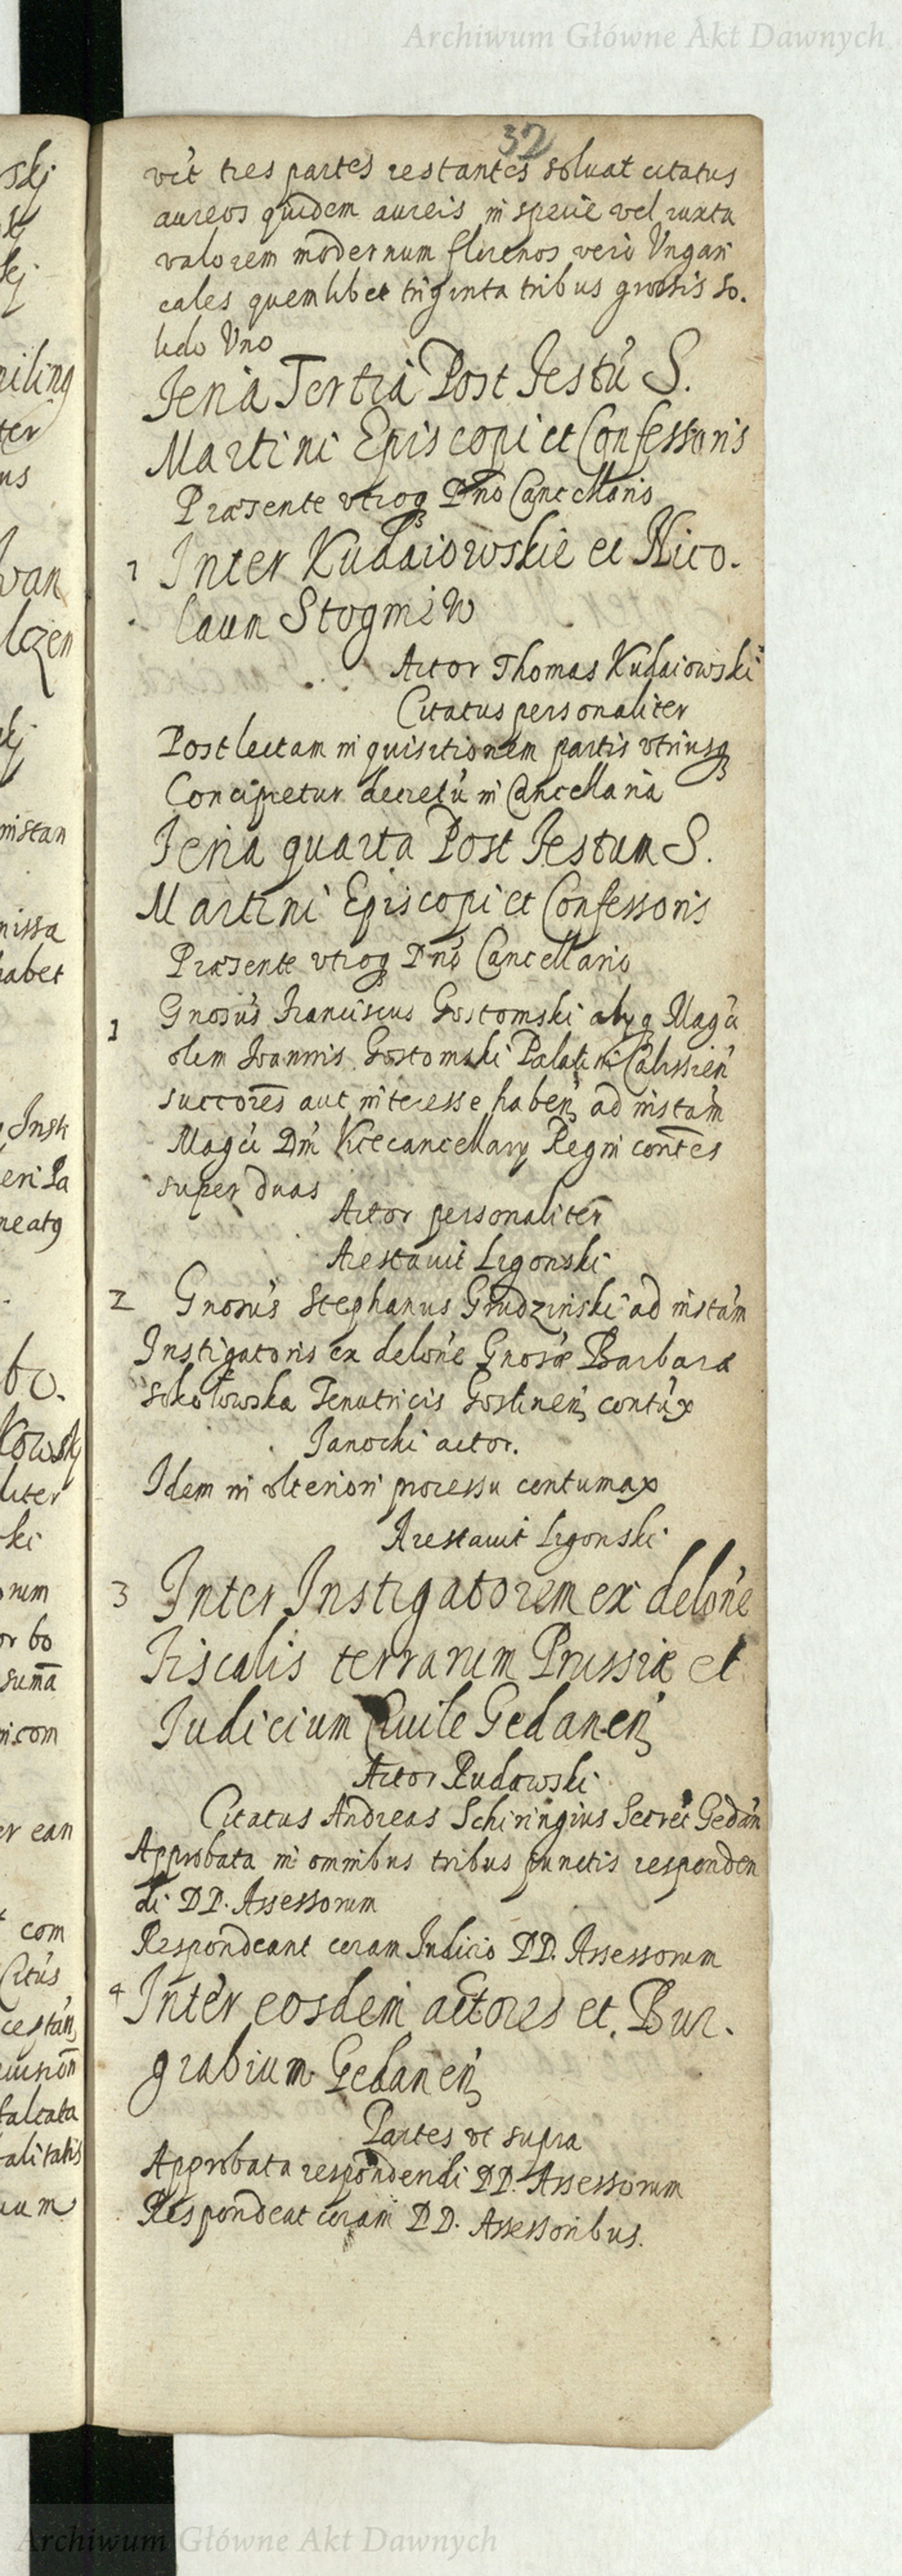 Archiwum Główne Akt Dawnych
32
vet tres partes restantes soluat citatus
aureos quidem aureis in specie vel iuxta
valorem modernum florenos vero Vngari
cales quemlibet triginta tribus grossis so.
lido Vno
Feria Tertia Post Festū S.
Martini Episcopi et Confessoris
Præsente vtroq Dno Cancellario
1 Inter Kudaiowskie et Nico.
laum Stogniew
Actor Thomas Kudaiowski
Citatus personaliter
Post lectam inquisitionem partis vtriusq
Concipietur decretū in Cancellaria
Feria quarta Post Festum S.
Martini Episcopi et Confessoris
Præsente vtroq Dno Cancellario
1 Gnosus Franciscus Gostomski alyq Magci
olim Joannis Gostomski Palatini Calissien
succores aut interesse haben ad instam
Magci Dni Vicecancellary Regni contes
super duas
Actor personaliter
Arestauit Ligonski
2 Gnosus Stephanus Grudzinski ad instam
Instigatoris ex delone Gnosæ Barbara
Sokołowska Tenutricis Gostinen contux
Janocki actor.
Idem in vlteriori processu contumax
Arestauit Ligonski
3 Inter Instigatorem ex delone
Fiscalis terrarum Prussiæ et
Judicium Ciuile Gedanen
Actor Rudawski
Citatus Andreas Schiringius Secret Gedan
Approbata in omnibus tribus punctis responden
di DD. Assessorum
Respondeant coram Judicio DD. Assessorum
4 Inter eosdem actores et Bur.
grabium Gedanen
Partes vt supra
Approbata respondendi DD. Assessorum
Respondeat coram DD. Assessoribus.
Archiwum Główne Akt Dawnych